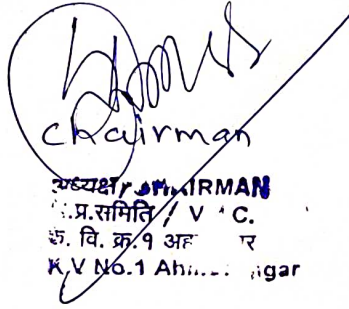 chairman
अध्यक्ष / CHAIRMAN
प्र.समिति / V C.
के. वि. क्र.१
K.V No.1